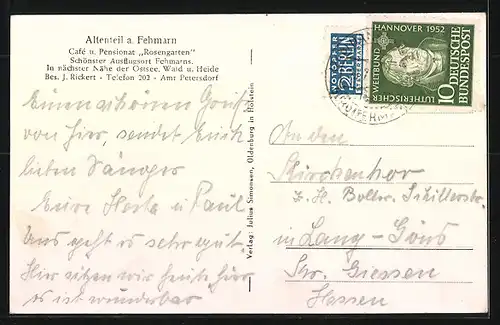 Altenteil a. Fehmarn
Café u. Pensionat „Rosengarten"
Schönster Ausflugsort Fehmarns.
In nächster Nähe der Ostsee, Wald u. Heide
Bes. J. Rickert - Telefon 202 - Amt Petersdorf
Einen schönen Gruß
von hier, sendet Euch
lieben Sänger
Eure Herta u Paul
Uns geht es sehr gut.
Hier sitzen wir heute hier
es ist wunderbar
Verlag: Julius Simonsen, Oldenburg in Holstein
NOTOPFER
2 BERLIN
STEUERMARKE
HANNOVER 1952
LUTHERISCHER
WELTBUND
10
DEUTSCHE
BUNDESPOST
An den
Kirchenchor
z. H. Schillerstr.
in Lang-Göns
Kr. Giessen
Hessen